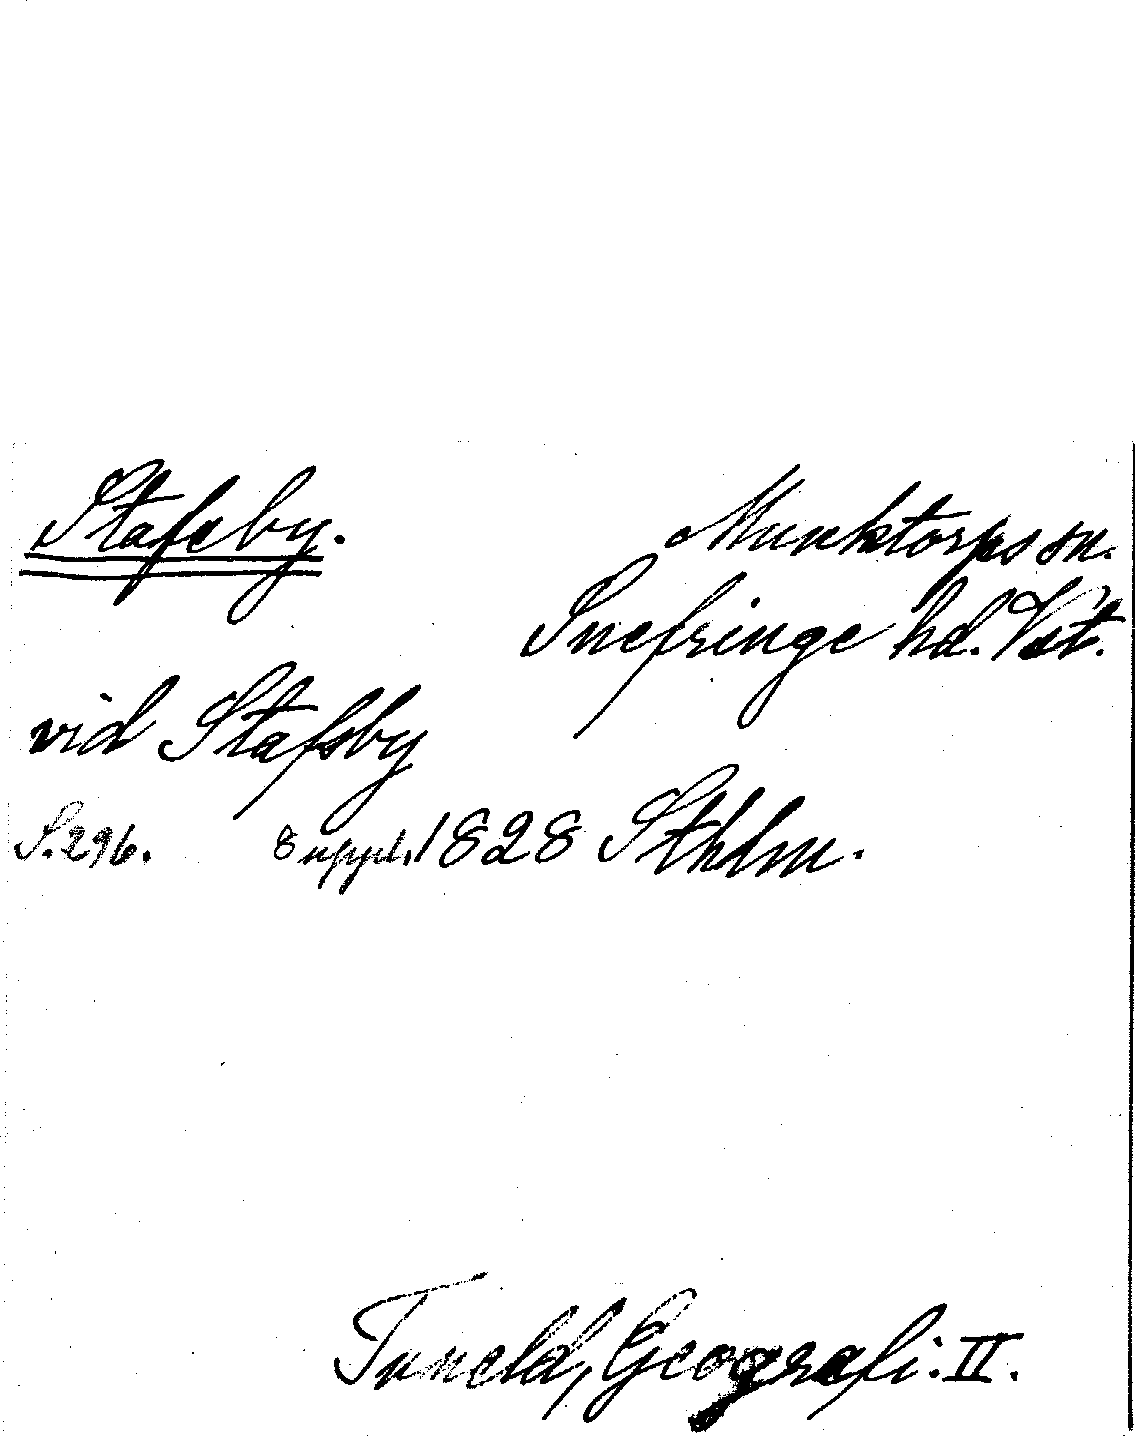 Stafsby.
Munktorps sn.
Snefringe hd. Vst.
vid Stafsby
S. 296. 8 uppl. 1828 Sthlm.
Tuneld, Geografi. II.